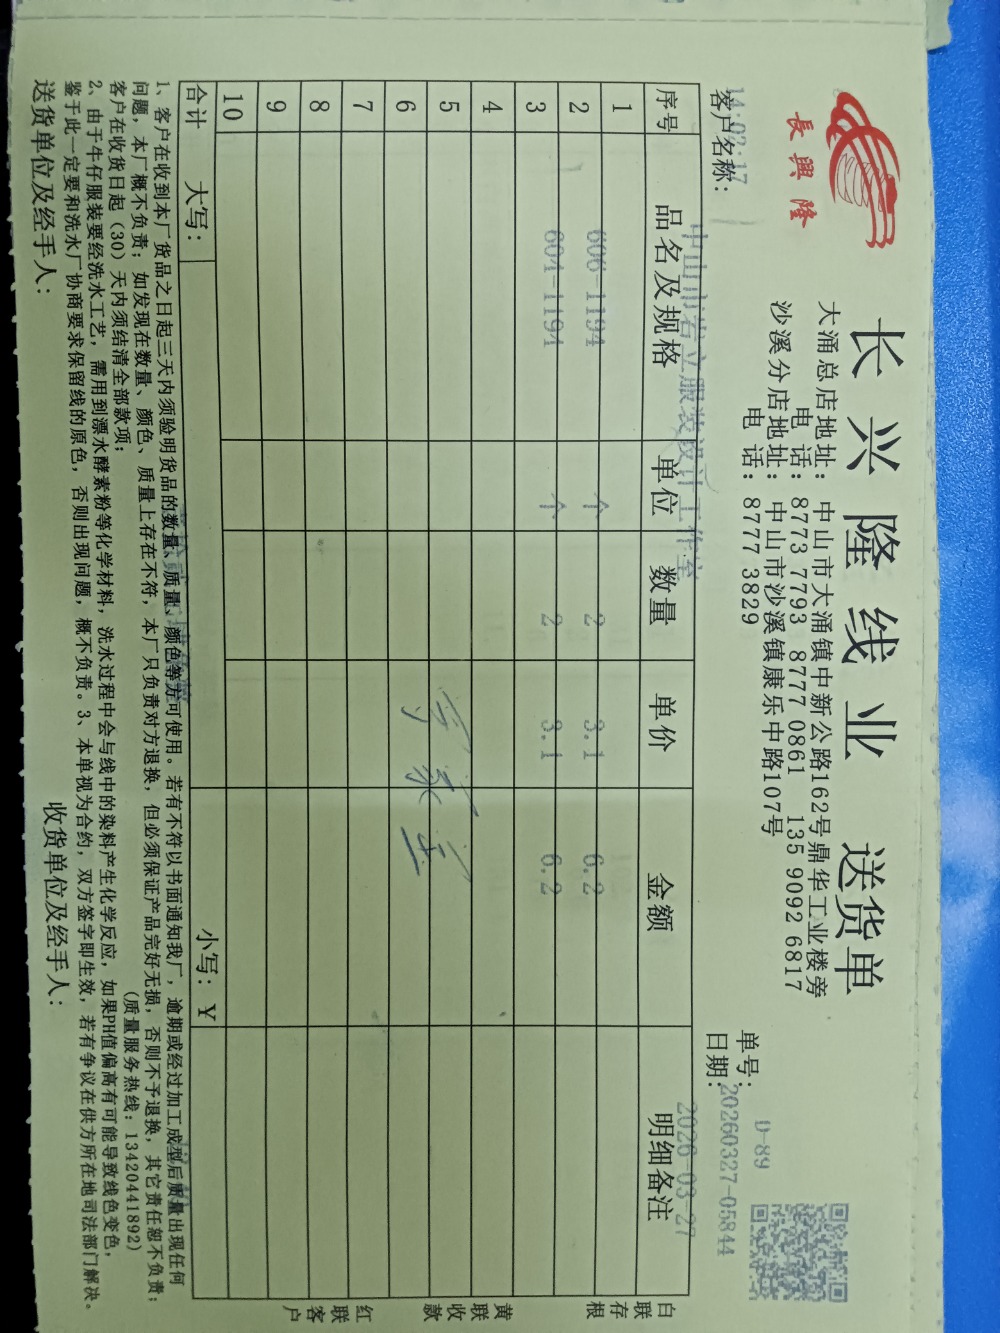 長興隆
长兴隆线业 送货单
大涌总店地址：中山市大涌镇中新公路162号鼎华工业楼旁
电 话：8773 7793 8777 0861 135 9092 6817
沙溪分店地址：中山市沙溪镇康乐中路107号
电 话：8777 3829
D-89
单号：20260327-05844
14:02:17
客户名称：
日期：
2026-03-27
序号 品名及规格 单位 数量 单价 金额 明细备注
1 606-1194 个 2 3.1 6.2
2 604-1194 个 2 3.1 6.2
3
4
5
6
7
8
9
10
合计 大写： 小写：￥
白联存根
黄联收款
红联客户
1、客户在收到本厂货品之日起三天内须验明货品的数量、质量、颜色等方可使用。若有不符以书面通知我厂，逾期或经过加工成型后质量出现任何
问题，本厂概不负责；如发现在数量、颜色、质量上存在不符，本厂只负责对方退换，但必须保证产品完好无损，否则不予退换，其它责任恕不负责；
客户在收货日起（30）天内须结清全部款项； （质量服务热线：13420441892）
2、由于牛仔服装要经洗水工艺，需用到漂水酵素粉等化学材料，洗水过程中会与线中的染料产生化学反应，如果PH值偏高有可能导致线色变色，
鉴于此一定要和洗水厂协商要求保留线的原色，否则出现问题，概不负责。3、本单视为合约，双方签字即生效，若有争议在供方所在地司法部门解决。
送货单位及经手人： 收货单位及经手人：